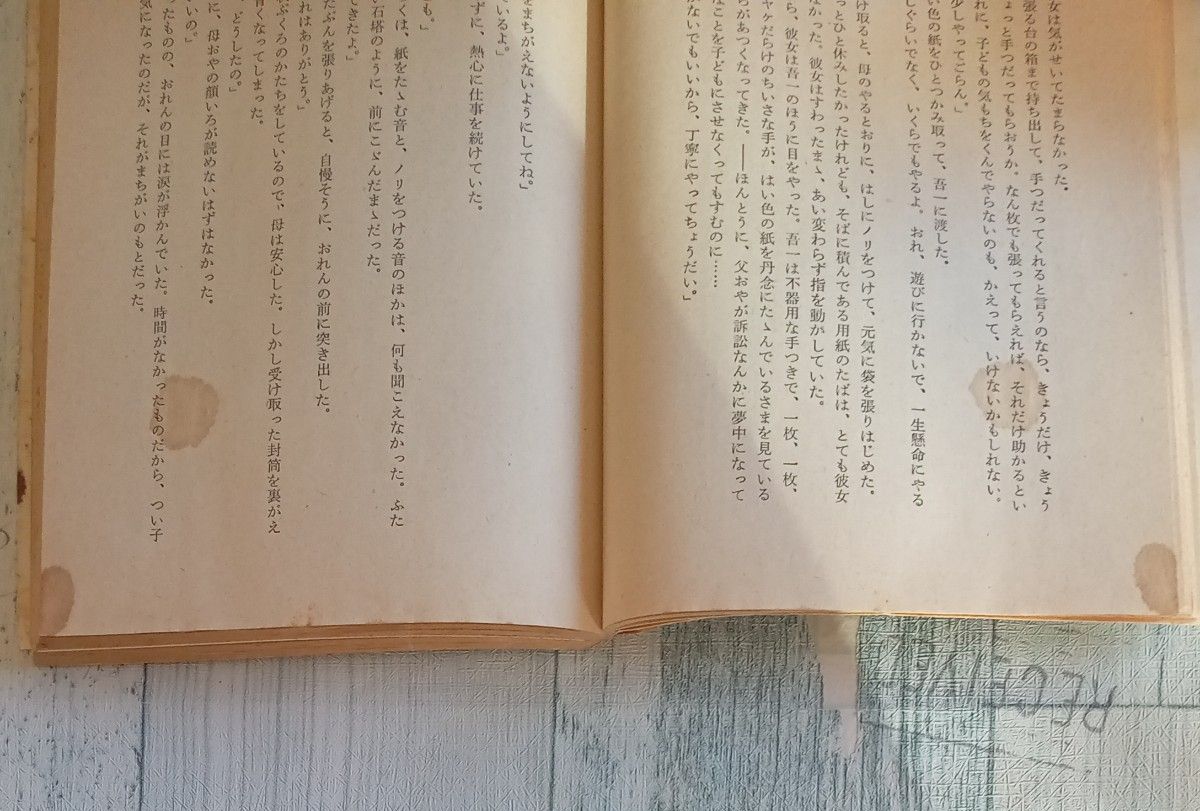 女は気がせいてたまらなかった。
張る台の箱まで持ち出して、手つだってくれると言うのなら、きょうだけ、きょう
ょっと手つだってもらおうか。なん枚でも張ってもらえれば、それだけ助かるとい
れに、子どもの気もちをくんでやらないのも、かえって、いけないかもしれない。
少しやってごらん。」
い色の紙をひとつかみ取って、吾一に渡した。
しぐらいでなく、いくらでもやるよ。おれ、遊びに行かないで、一生懸命にやる
け取ると、母のやるとおりに、はしにノリをつけて、元気に袋を張りはじめた。
っとひと休みしたかったけれども、そばに積んである用紙のたばは、とても彼女
なかった。彼女はすわったまゝ、あい変わらず指を動かしていた。
ら、彼女は吾一のほうに目をやった。吾一は不器用な手つきで、一枚、一枚、
ャケだらけのちいさな手が、はい色の紙を丹念にたゝんでいるさまを見ている
らがあつくなってきた。――ほんとうに、父おやが訴訟なんかに夢中になって
なことを子どもにさせなくってもすむのに……
がないでもいいから、丁寧にやってちょうだい。」
をまちがえないようにしてね。」
ているよ。」
ずに、熱心に仕事を続けていた。
も。」
くは、紙をたゝむ音と、ノリをつける音のほかは、何も聞こえなかった。ふた
石塔のように、前にこゞんだまゝだった。
できたよ。」
たぶんを張りあげると、自慢そうに、おれんの前に突き出した。
れはありがとう。」
ぶくろのかたちをしているので、母は安心した。しかし受け取った封筒を裏がえ
青くなってしまった。
、どうしたの。」
に、母おやの顔いろが読めないはずはなかった。
いの。」
ったものの、おれんの目には涙が浮かんでいた。時間がなかったものだから、つい子
気になったのだが、それがまちがいのもとだった。